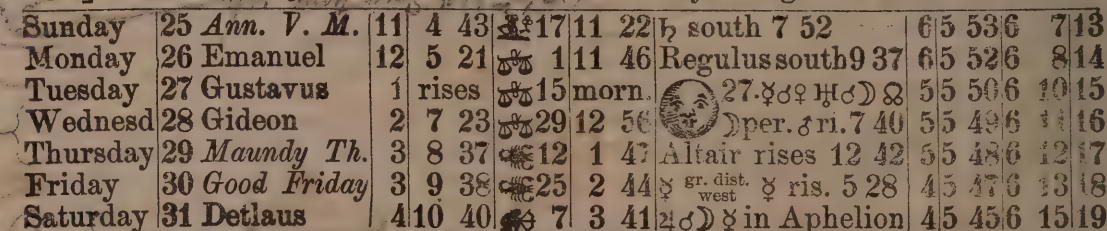 Sunday 25 Ann. V. M. 11 4 43 ♍ 17 11 22 ♄ south 7 52 6 5 53 6 7 13
Monday 26 Emanuel 12 5 21 ♎ 1 11 46 Regulus south 9 37 6 5 52 6 8 14
Tuesday 27 Gustavus 1 rises ♎ 15 morn. 27. ☿☌♀ ♅☌☽ ☊ 5 5 50 6 10 15
Wednesd 28 Gideon 2 7 23 ♎ 29 12 56 ☽ per. ♂ ri. 7 40 5 5 49 6 11 16
Thursday 29 Maundy Th. 3 8 37 ♏ 12 1 47 Altair rises 12 42 5 5 48 6 12 17
Friday 30 Good Friday 3 9 38 ♏ 25 2 44 ☿ gr. dist. west ☿ ris. 5 28 4 5 47 6 13 18
Saturday 31 Detlaus 4 10 40 ♐ 7 3 41 ♃☌☽ ☿ in Aphelion 4 5 45 6 15 19